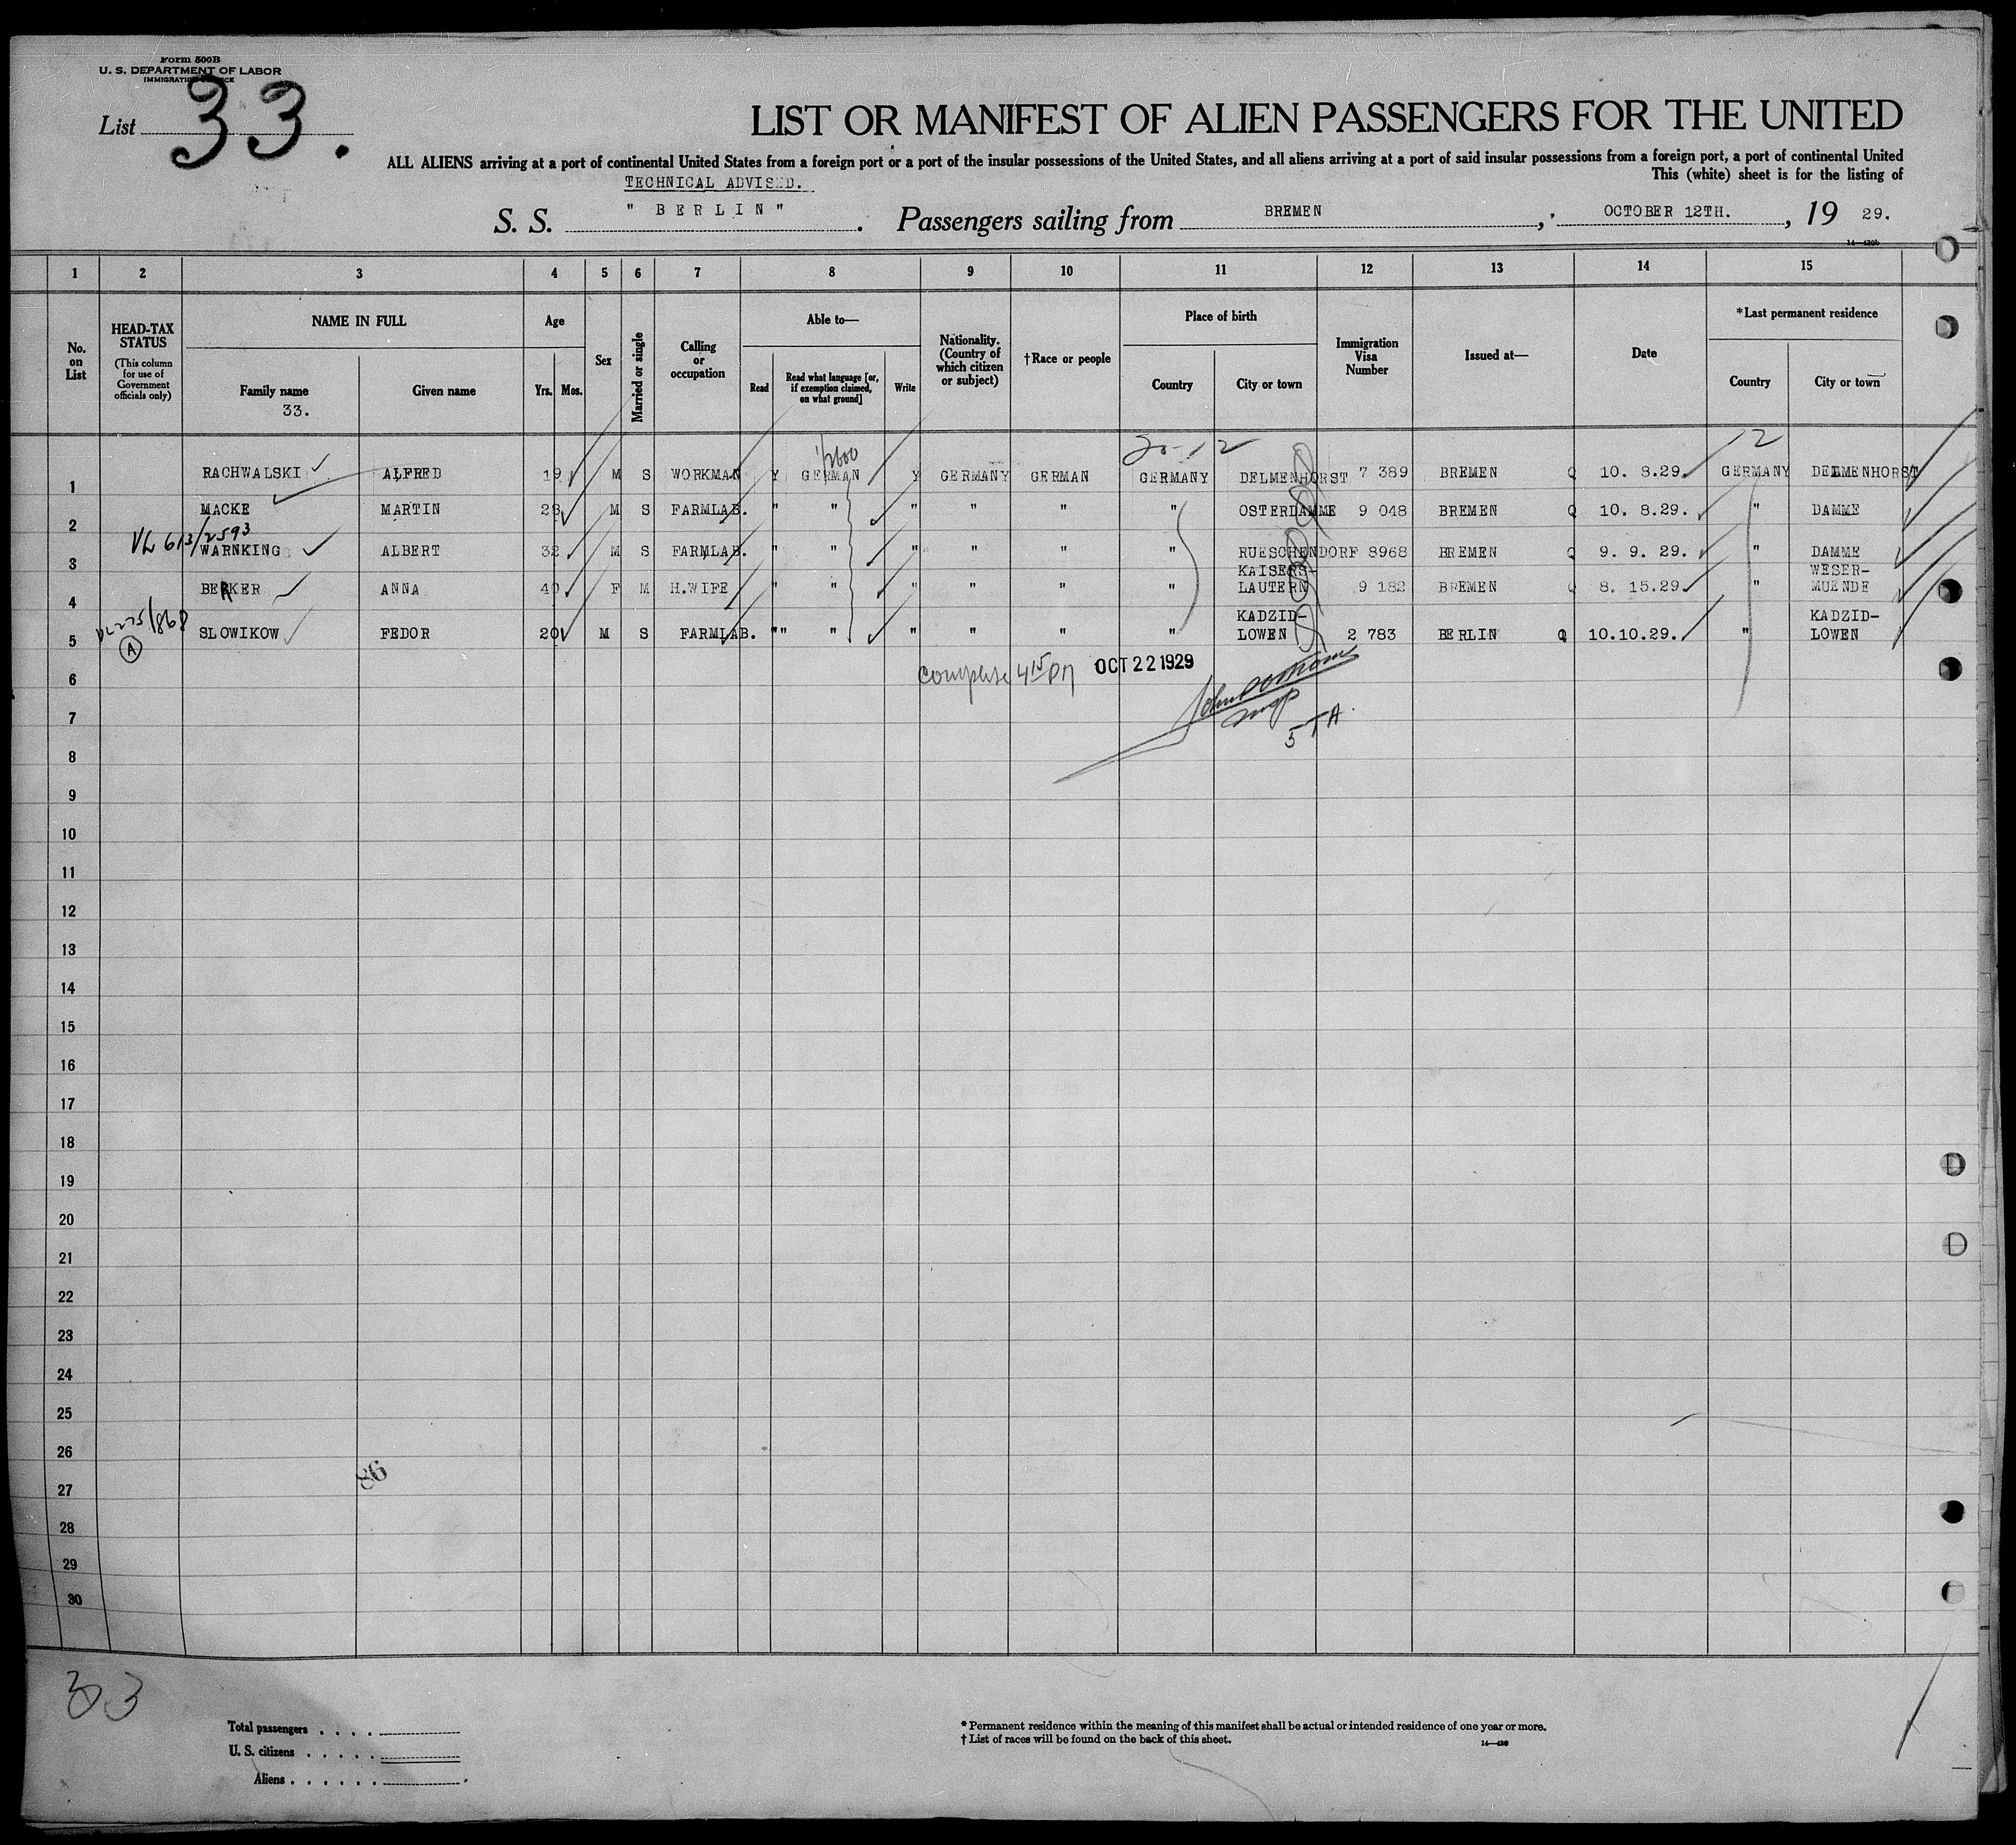 Form 500B
U. S. DEPARTMENT OF LABOR
IMMIGRATION SERVICE
List 33.
LIST OR MANIFEST OF ALIEN PASSENGERS FOR THE UNITED
ALL ALIENS arriving at a port of continental United States from a foreign port or a port of the insular possessions of the United States, and all aliens arriving at a port of said insular possessions from a foreign port, a port of continental United
This (white) sheet is for the listing of
TECHNICAL ADVISED.
S. S. " BERLIN " . Passengers sailing from BREMEN , OCTOBER 12TH. , 19 29.
1 2 3 4 5 6 7 8 9 10 11 12 13 14 15
No. on List
HEAD-TAX STATUS
(This column for use of Government officials only)
NAME IN FULL
Family name
33.
Given name
Age
Yrs. Mos.
Sex
Married or single
Calling or occupation
Able to—
Read
Read what language [or, if exemption claimed, on what ground]
Write
Nationality. (Country of which citizen or subject)
†Race or people
Place of birth
Country
City or town
Immigration Visa Number
Issued at—
Date
*Last permanent residence
Country
City or town
20-12
12
1 RACHWALSKI ALFRED 19 M S WORKMAN Y GERMAN Y GERMANY GERMAN GERMANY DELMENHORST 7 389 BREMEN Q 10. 8.29. GERMANY DELMENHORST
2 MACKE MARTIN 28 M S FARMLAB. " " " " " " OSTERDAMME 9 048 BREMEN Q 10. 8.29. " DAMME
613/2593
3 WARNKING ALBERT 32 M S FARMLAB. " " " " " " RUESCHENDORF 8968 BREMEN Q 9. 9. 29. " DAMME
4 BECKER ANNA 40 F M H.WIFE " " " " " " KAISERS-LAUTERN 9 182 BREMEN Q 8. 15.29. " WESER-MUENDE
275/868
A
5 SLOWIKOW FEDOR 20 M S FARMLAB. "" " " " " " KADZID-LOWEN 2 783 BERLIN Q 10.10.29. " KADZID-LOWEN
Complete 4 15 PM OCT 22 1929
5 TA
6
7
8
9
10
11
12
13
14
15
16
17
18
19
20
21
22
23
24
25
26
27
28
29
30
86
33
Total passengers . . . .
U. S. citizens . . . . .
Aliens . . . . . .
* Permanent residence within the meaning of this manifest shall be actual or intended residence of one year or more.
† List of races will be found on the back of this sheet.